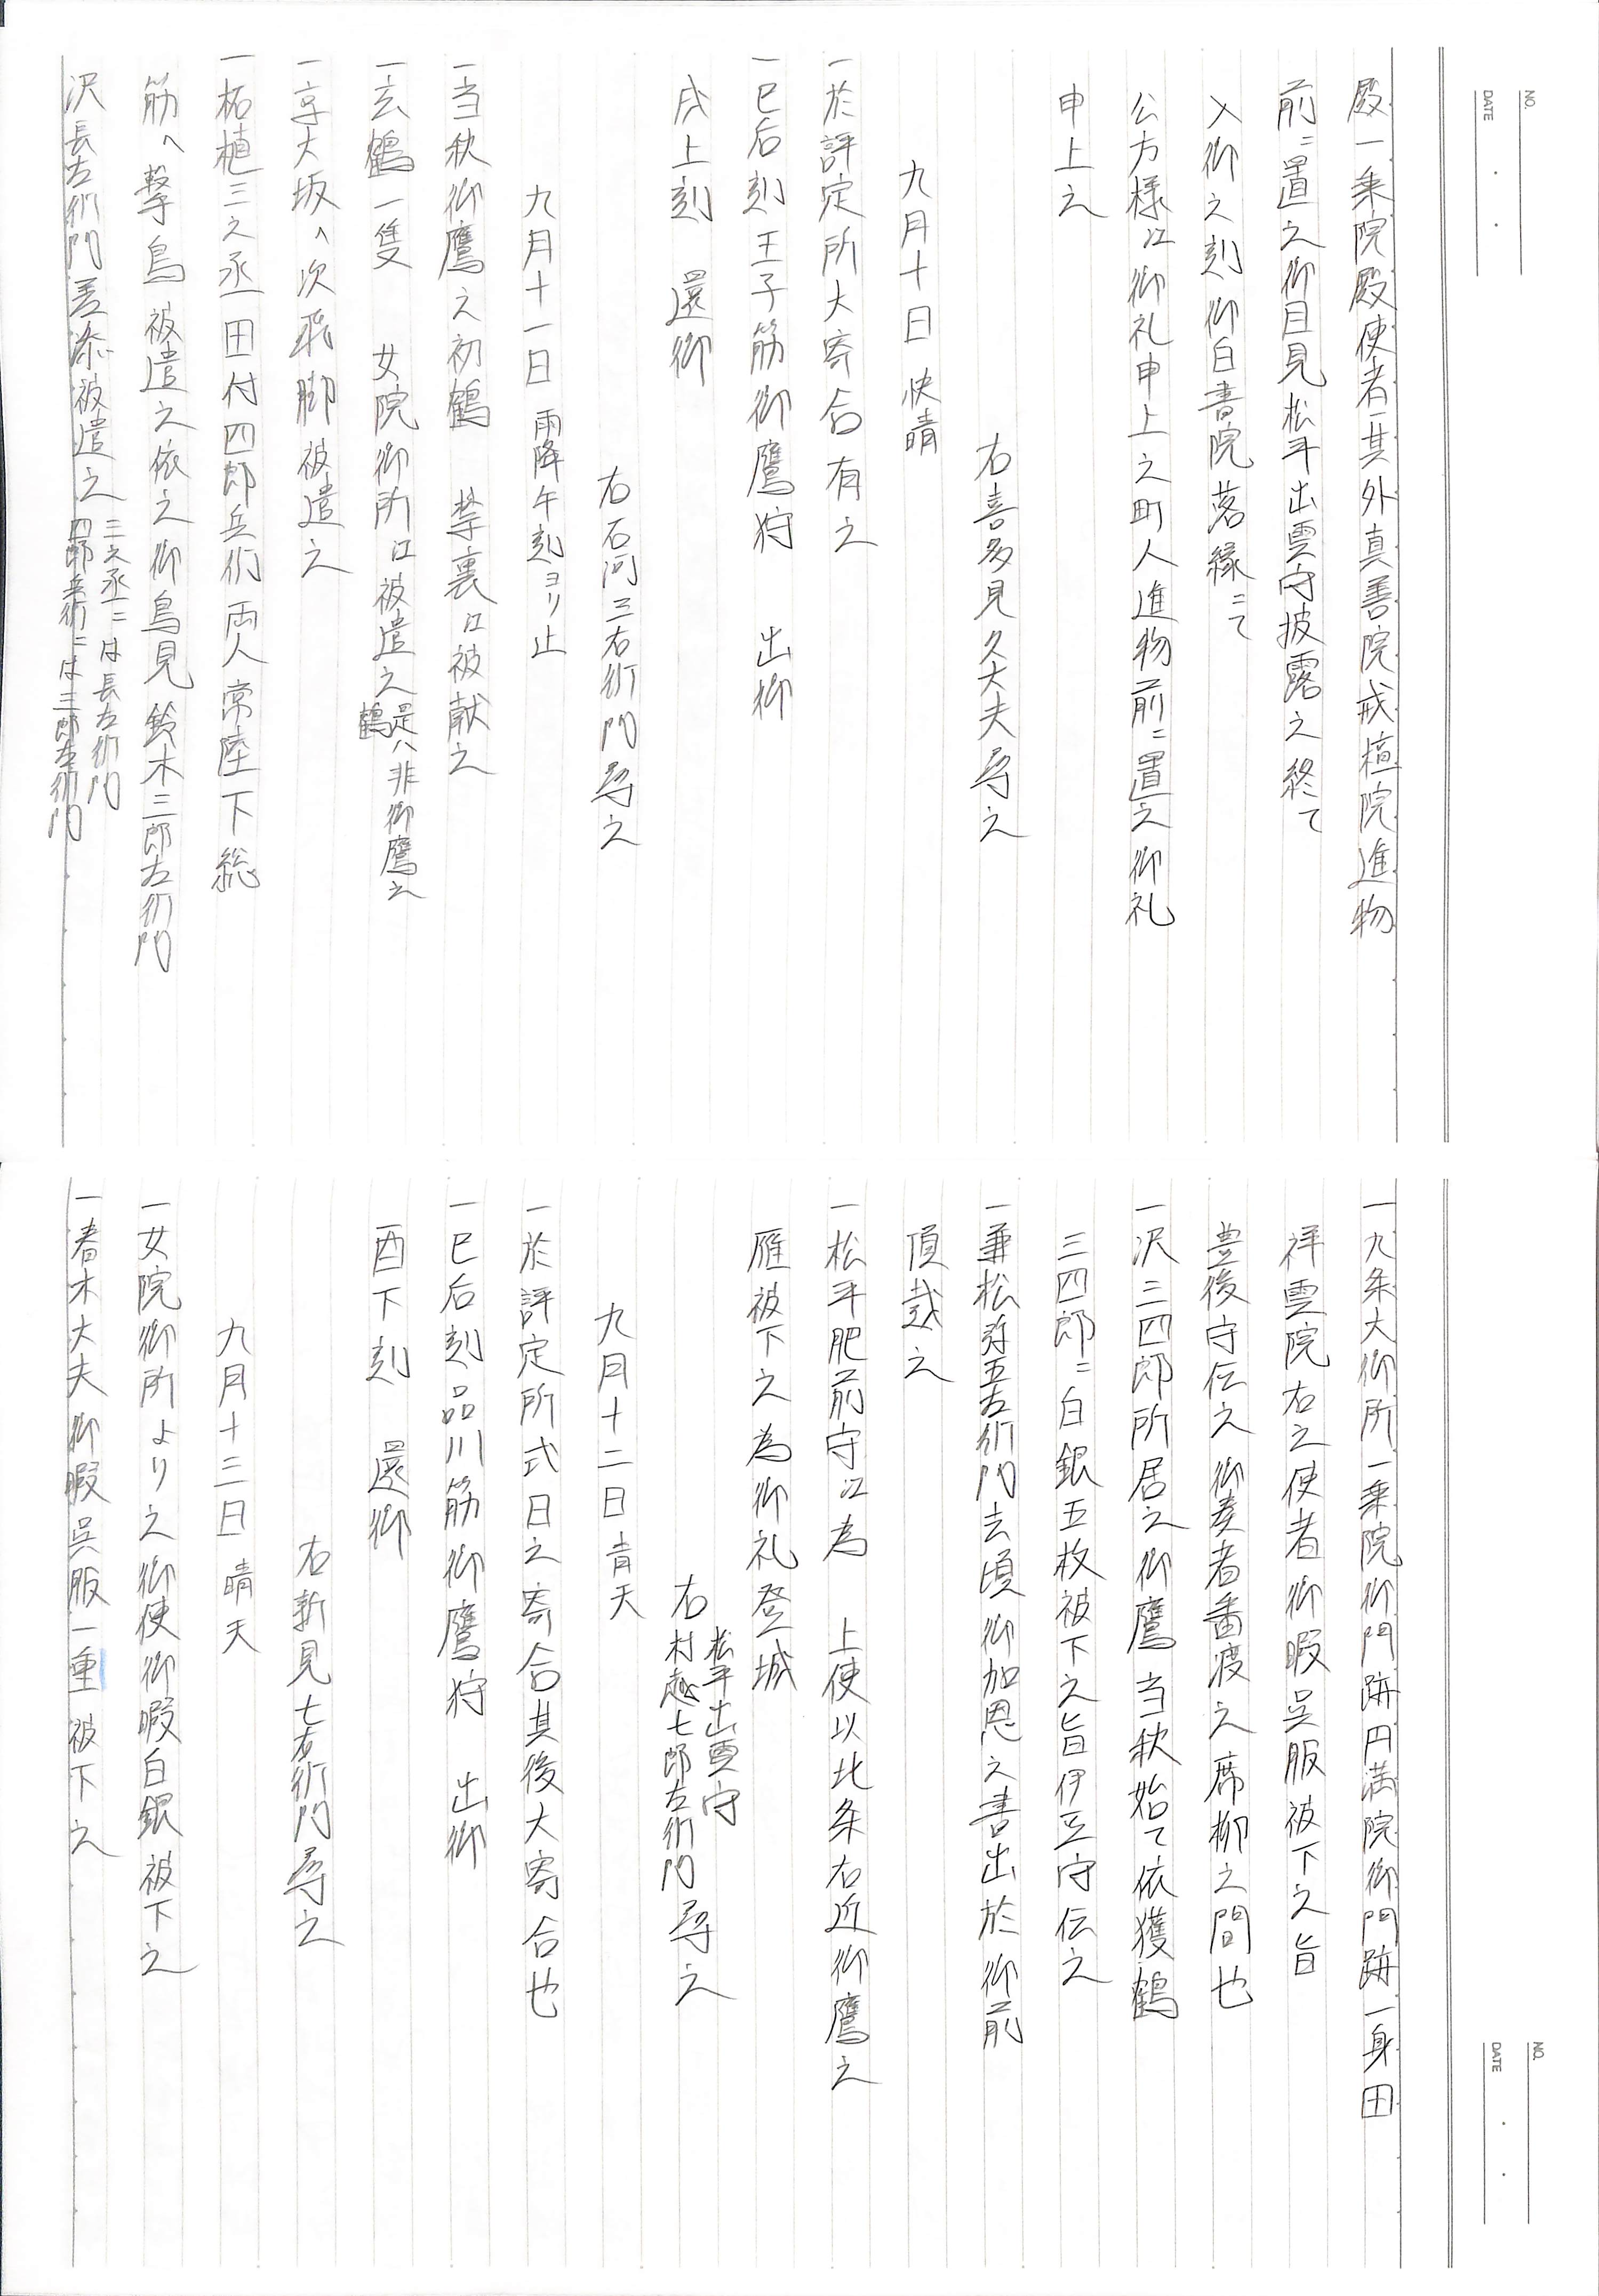 NO.
DATE
殿一乗院殿使者一其外真善院戒壇院進物
前ニ置之御目見松平出雲守披露之終て
入御之刻御白書院落縁ニて
公方様江御礼申上之町人進物前ニ置之御礼
申上之
右喜多見久大夫尋之
九月十日 快晴
一於評定所大寄合有之
一巳后刻王子筋御鷹狩 出御
戌上刻 還御
右石河三右衛門尋之
九月十一日 雨降午刻ヨリ止
一当秋御鷹之初鶴 禁裏江被献之
一玄鶴一隻 女院御所江被遣之 是ハ非御鷹之鶴
一京大坂へ次飛脚被遣之
一柘植三之丞田付四郎兵衛両人常陸下総
筋へ撃鳥被遣之依之御鳥見鈴木三郎左衛門
沢長左衛門差添被遣之 三之丞ニは長左衛門 四郎兵衛ニは三郎左衛門
NO.
DATE
一九条大御所一乗院御門跡円満院御門跡一身田
祥雲院右之使者御暇呉服被下之旨
豊後守伝之御奏者番渡之席柳之間也
一沢三四郎所居之御鷹当秋始て依獲鶴
三四郎ニ白銀五枚被下之旨伊豆守伝之
一兼松弥五左衛門去頃御加恩之書出於御前
頂戴之
一松平肥前守江為 上使以北条右近御鷹之
雁被下之為御礼登城
右 松平出雲守 村越七郎左衛門 尋之
九月十二日 青天
一於評定所式日之寄合其後大寄合也
一巳后刻品川筋御鷹狩 出御
酉下刻 還御
右新見七右衛門尋之
九月十三日 晴天
一女院御所より之御使御暇白銀被下之
一春木大夫御暇呉服一重被下之